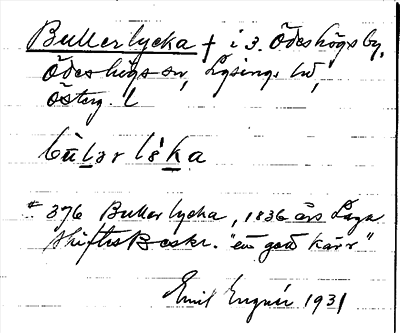 Bullerlycka † i 3. Ödeshögs by,
Ödeshögs sn, Lysings hd,
Österg. l
bu̇lər lẙka
# 376 Buller lycka, 1836 års Laga
skiftes Beskr. "en god kärr"
Emil 1931